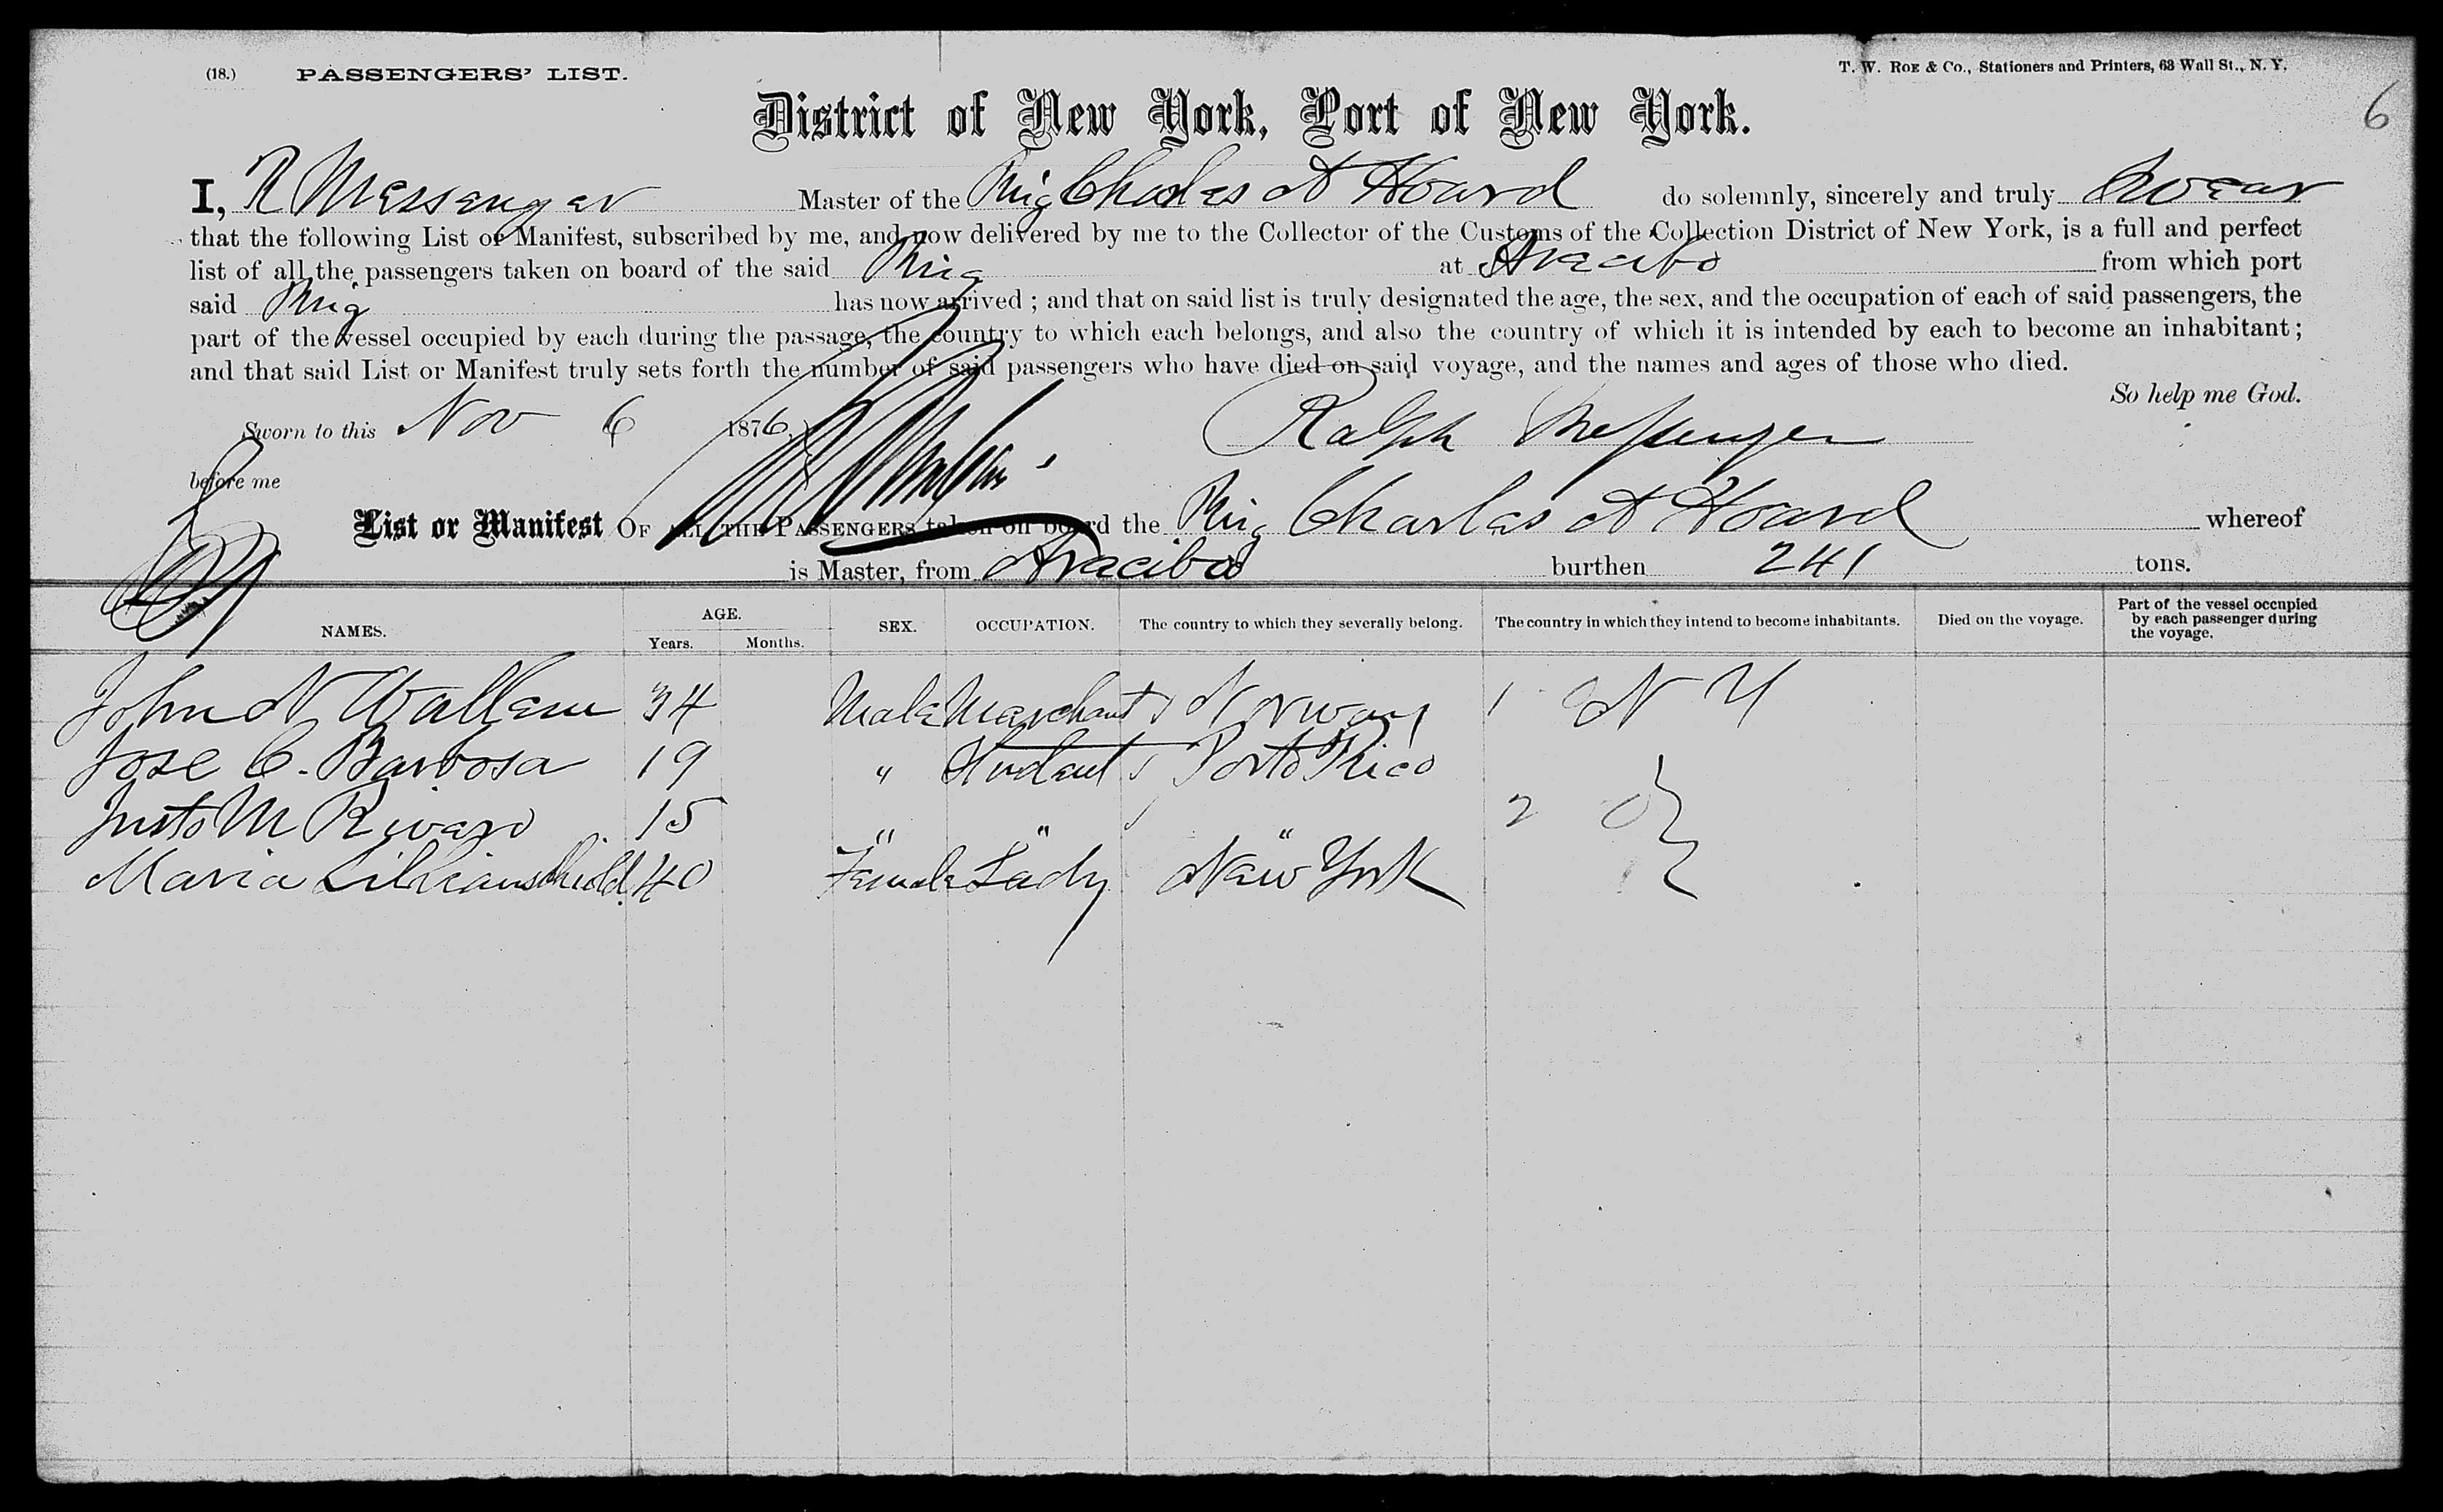 (18.) PASSENGERS' LIST.
T. W. ROE & CO., Stationers and Printers, 63 Wall St., N. Y.
6
District of New York, Port of New York.
I, R Messenger Master of the Brig Charles A Hoard do solemnly, sincerely and truly Swear
that the following List or Manifest, subscribed by me, and now delivered by me to the Collector of the Customs of the Collection District of New York, is a full and perfect
list of all the passengers taken on board of the said Brig at Aracibo from which port
said Brig has now arrived ; and that on said list is truly designated the age, the sex, and the occupation of each of said passengers, the
part of the vessel occupied by each during the passage, the country to which each belongs, and also the country of which it is intended by each to become an inhabitant ;
and that said List or Manifest truly sets forth the number of said passengers who have died on said voyage, and the names and ages of those who died.
So help me God.
Sworn to this Nov 6 1876.
Ralph Messenger
before me
List or Manifest OF ALL THE PASSENGERS taken on board the Brig Charles A Hoard whereof
is Master, from Aracibo burthen 241 tons.
NAMES. AGE. Years. Months. SEX. OCCUPATION. The country to which they severally belong. The country in which they intend to become inhabitants. Died on the voyage. Part of the vessel occupied by each passenger during the voyage.
John N Wallem 34 Male Merchant Norway 1 N Y
Jose C. Barbosa 19 " Student Porto Rico
Justo M Rivaro 15 " " " 2
Maria 40 Female Lady New York